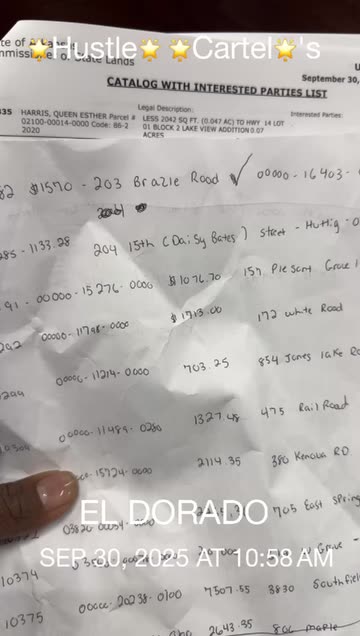 te of
🌟Hustle🌟 🌟Cartel🌟's
ommissi er of State Lands
U
September 30,
CATALOG WITH INTERESTED PARTIES LIST
835 HARRIS, QUEEN ESTHER Parcel #
02100-00014-0000 Code: 86-2
2020
Legal Description:
LESS 2042 SQ FT. (0.047 AC) TO HWY 14 LOT
01 BLOCK 2 LAKE VIEW ADDITION 0.07
ACRES
Interested Parties:
82 $1570 - 203 Brazle Road ✓ 00000-16403-
285 - 1133.28 204 15th (Daisy Bates) street - Huttig - 0
91 - 00000-15276-0000 $1076.70 157 Plesant Grove
292 00000-11798-0000 $1713.00 172 White Road
294 00000-11214-0000 703.25 854 Jones lake Ro
00000-11489-0280 1327.48 475 Rail Road
15724-0000 2114.35 380 Kenova RD
EL DORADO
705 East Spring
SEP 30, 2025 AT 10:58 AM
Grove -
10374 00000-20238-0100 7507.55 3830 Southfiel
10375 2643.35 806 maple